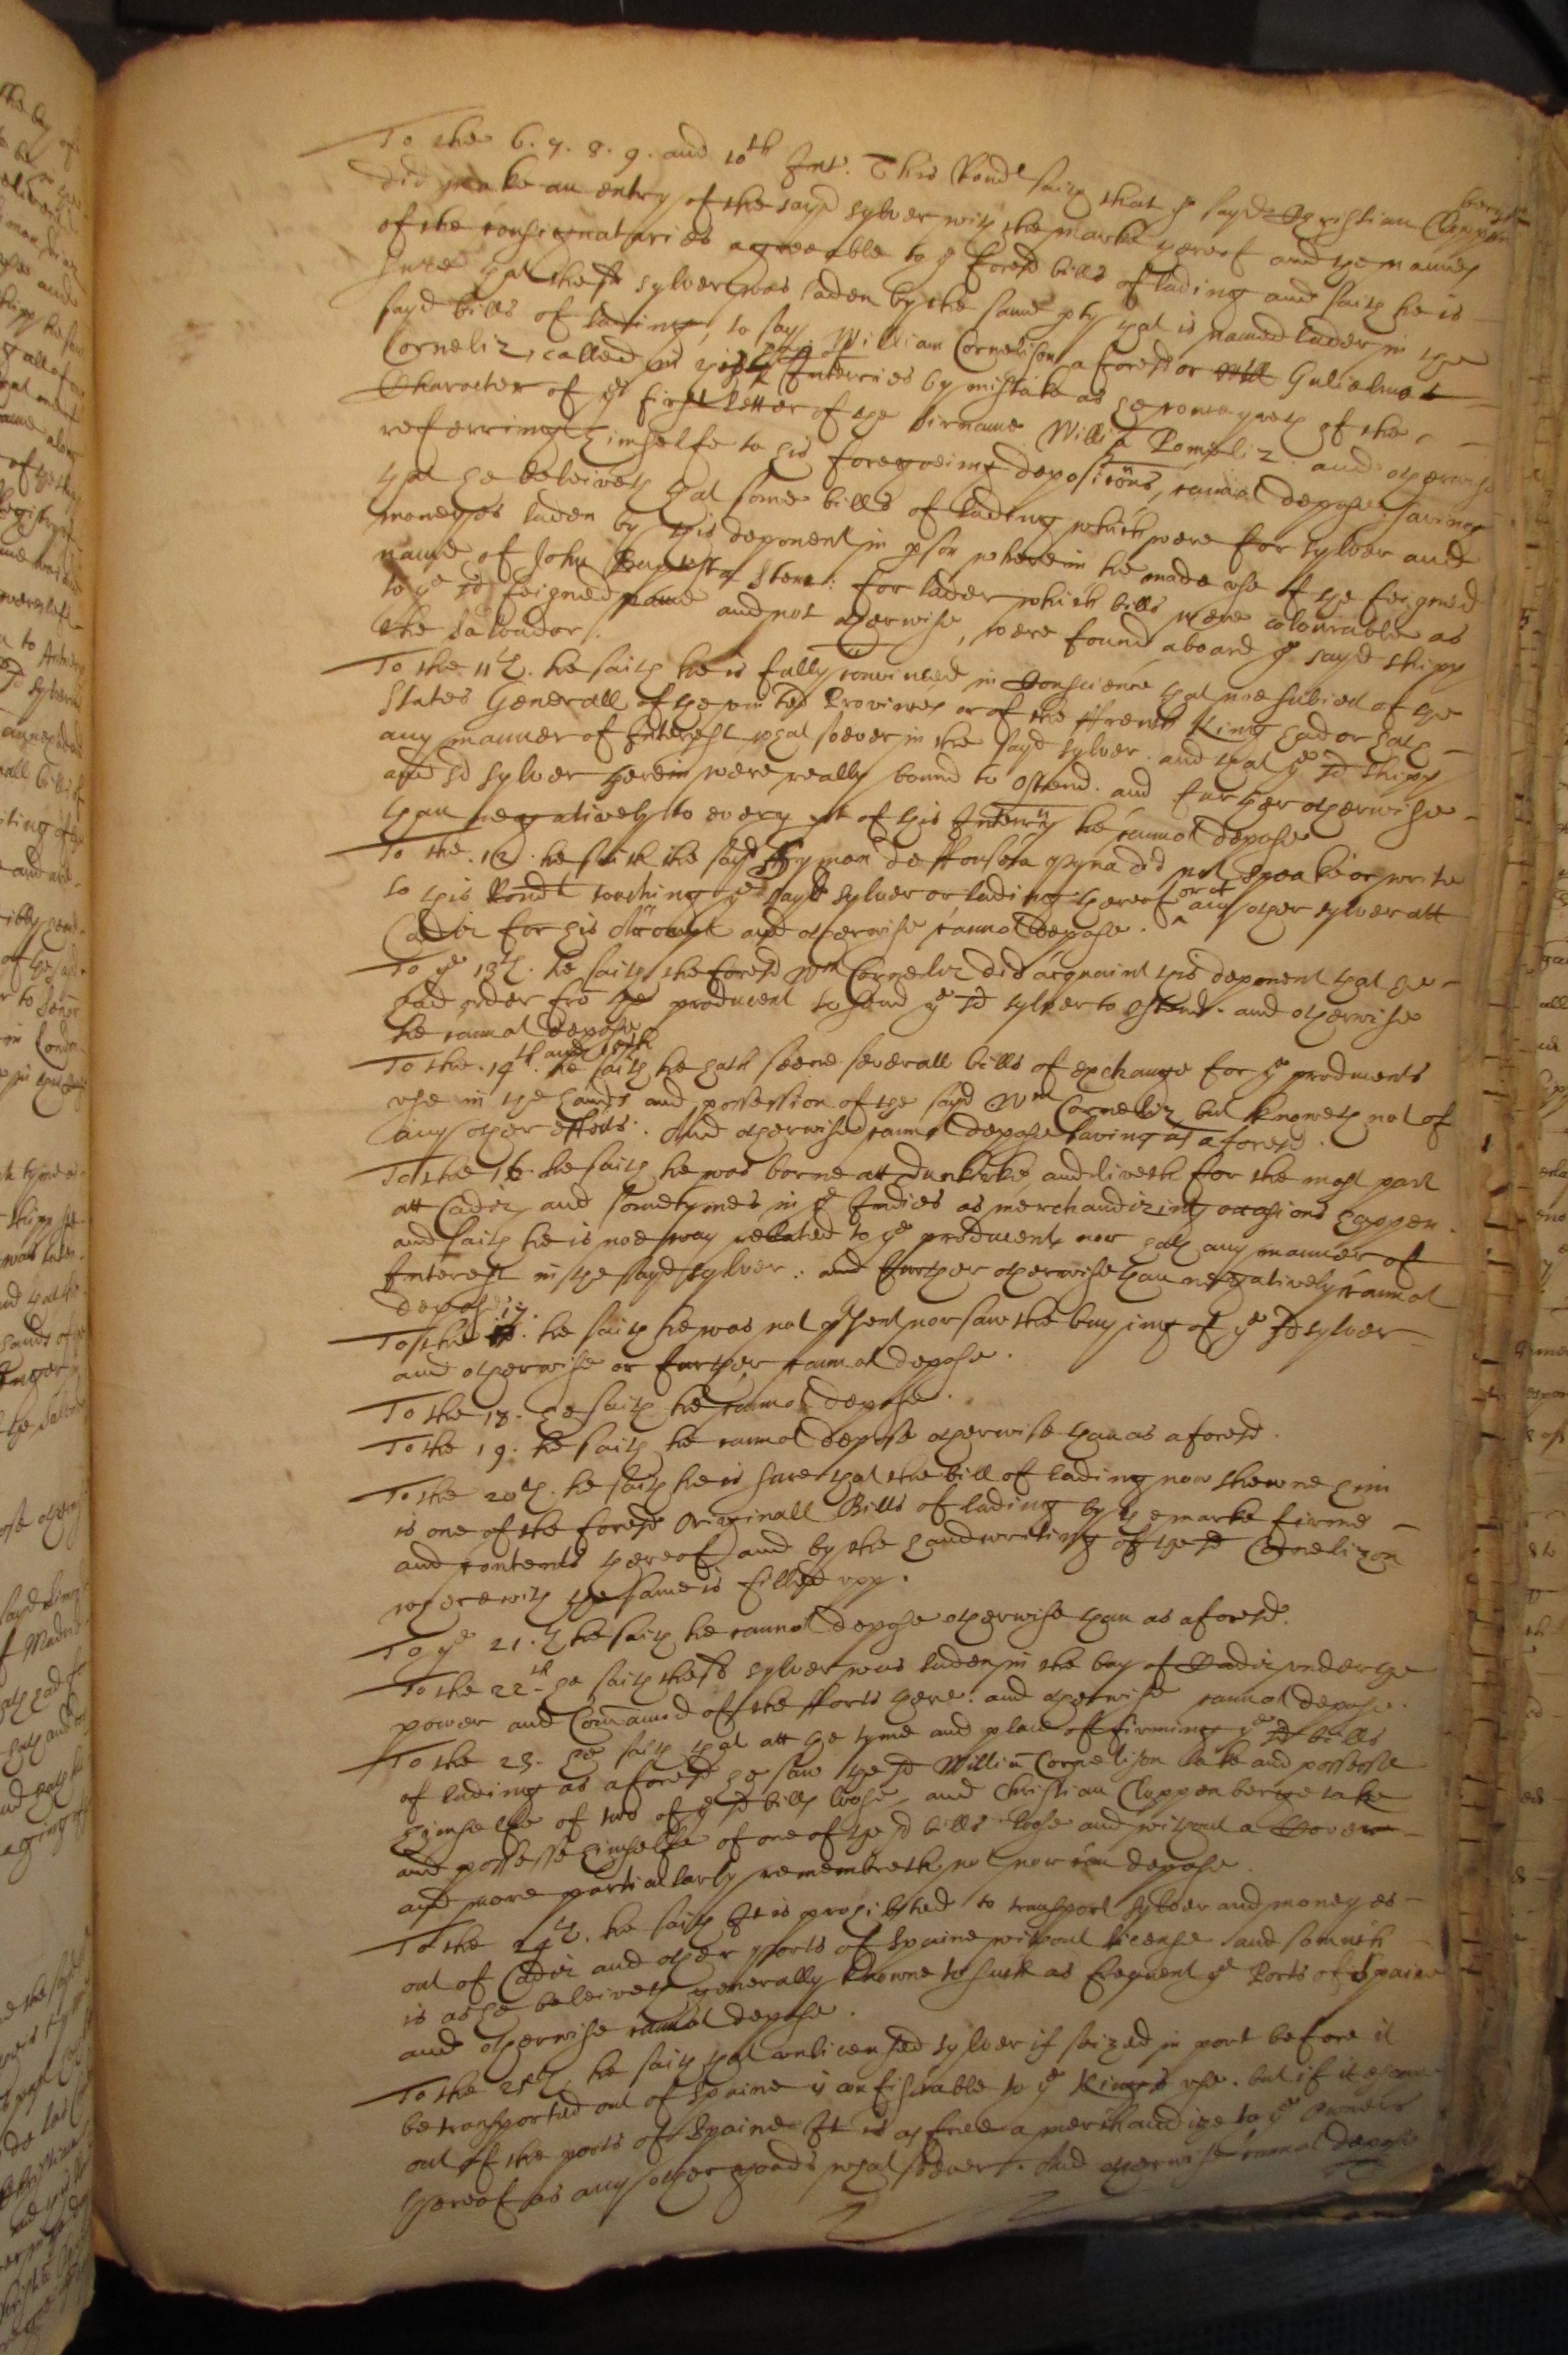 To the 6. 7. 8. 9. and 10th Int. This Rondt saith that ye sayd Christian Cloppen
berge
did make an entry of the sayd sylver with the marke thereof and the names
of the consignataries agreeable to ye foresd bills of lading and saith he is
sure that the sd sylver was laden by the same pty that is named lader in the
sayd bills of lading, to say William Cornelison aforesd or Gulielmo
Corneliz, called in this Interries by mistake as he conceyveth of the
Character of ye first letter of the sirname Willia Romeliz and otherwise
referring himselfe to his foregoeing depositons, cannot depose saving
that he beleiveth that some bills of lading which were for sylver and
moneyes laden by this deponent in pson wherein he made use of the feigned
name of John Baptista Stone: for lader which bills were colourable as
to ye sd feigned name and not otherwise, were found aboard ye sayd shipp
the Salvador.
To the 11th. he saith he is fully convinced in Conscience that noe subiect of the
States Generall of the united Provinces or of the ffrench King had or hath
any manner of Interest whatsoever in the sayd sylver. and that ye sd shipp
and sd sylver therein were really bound to Ostend. and further otherwise
than negatively to every pt of this Interry he cannot depose
To the 12. he saith the sayd Symon de ffonseca pyna did not speake or write
to this Rondt touching ye sayd sylver or lading thereof or of any other sylver att
Cadiz for his Accompt and otherwise cannot depose.
To ye 13th. he saith the foresd Wm Corneliz did acquaint this deponent that he
had order fro the producent to send ye sd sylver to Ostend. and otherwise
he cannot depose
To the 14th and 15th he saith he hath seene severall bills of exchange for ye producents
use in the hands and possession of the sayd Wm Corneliz but knoweth not of
any other effects. And otherwise cannot depose saving as aforesd.
To the 16. he saith he was borne att Dunkirke, and liveth for the most part
att Cadiz, and sometymes in ye Indies as merchandizing occasions happen.
and saith he is noe way related to ye producent, nor hath any manner of
Interest in the sayd sylver. and further otherwise than negatively cannot
depose
To the 17. he saith he was not psent nor saw the buying of ye sd sylver
and otherwise or further cannot depose.
To the 18. he saith he cannot depose.
To the 19. he saith he cannot depose otherwise than as aforesd.
To the 20th. he saith he is sure that the bill of lading now shewne him
is one of the foresd Originall Bills of lading by the marke firme
and contents thereof and by the handwriting of the sd Cornelizon
wherewith the same is filled upp.
To ye 21.th he saith he cannot depose otherwise than as aforesd.
To the 22th he saith the sd sylver was laden in the bay of Cadiz under the
power and Comand of the fforts there. and otherwise cannot depose.
To the 23. he saith that att the tyme and place of firming ye sd bills
of lading as aforesd he saw the sd Willia Cornelison take and possesse
himselfe of two of ye sd bills loose, and Christian Cloppenberge take
and possesse himselfe of one of the sd bills loose and without a Cover
and more particularly remembreth not nor can depose.
To the 24th. he saith It is prohibited to transport sylver and moneyes
out of Cadiz and other pports of Spaine without license and somuch
is as he beleiveth generally knowne to such as frequent ye Ports of Spaine
and otherwise cannot depose.
To the 25th. he saith that unlicensed sylver if seized in port before it
be transported out of Spaine is confiscable to ye Kings use. but if it escape
out of the ports of Spaine It is as free a merchandize to ye owners
thereof as any other goods whatsoever. And otherwise cannot depose